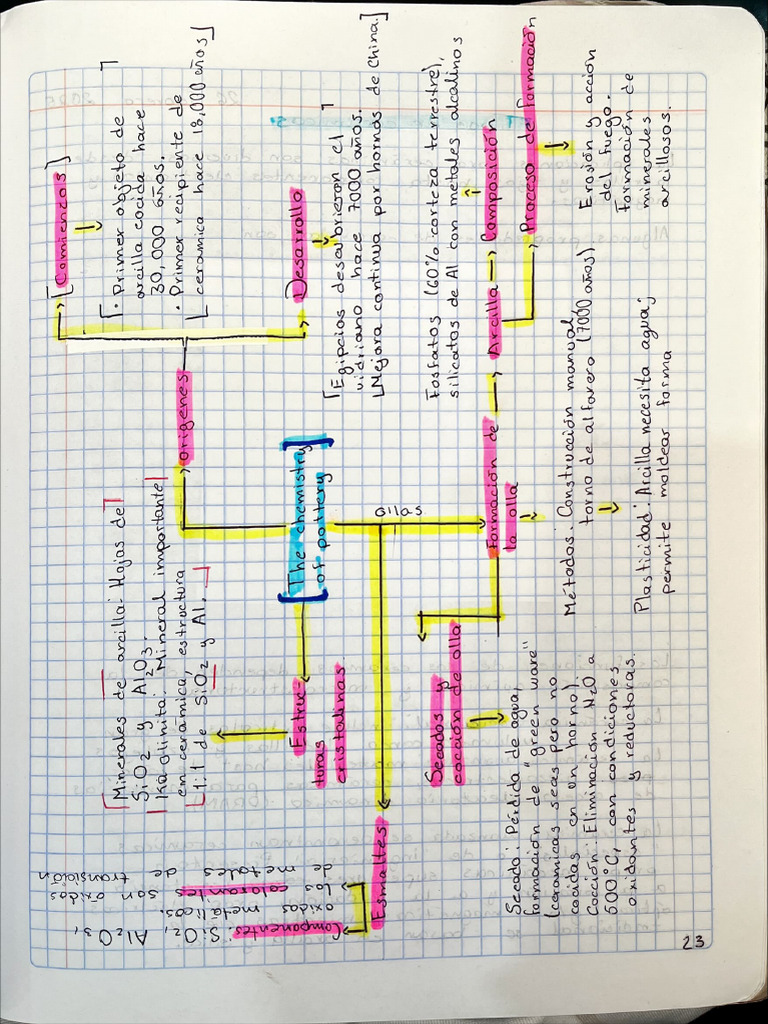 [The chemistry
of pottery]
Orígenes
[Comienzos]
• Primer objeto de
arcilla cocida hace
30,000 años.
• Primer recipiente de
ceramica hace 18,000 años]
Desarrollo
[Egipcios descubrieron el
vidriano hace 7000 años.
Mejora continua por hornos de China.]
Formación de
la olla
Arcilla
Composición
Fosfatos (60% corteza terrestre),
silicatos de Al con metales alcalinos
Proceso de formación
Erosión y acción
del fuego.
Formación de
minerales
arcillosos.
Métodos. Construcción manual,
torno de alfarero (7000 años)
Plasticidad: Arcilla necesita agua;
permite moldear forma
Secados y
cocción de olla
Secado: Pérdida de agua,
formación de "green ware"
(ceramicas seas pero no
cocidas en un horno).
Cocción: Eliminación H2O a
500°C, con condiciones
oxidantes y reductoras.
Estruc-
turas
cristalinas
[Minerales de arcilla: Hojas de
SiO2 y Al2O3.
Kaolinita: Mineral importante
en ceramica, estructura
1:1 de SiO2 y Al.]
Esmaltes
Componentes: SiO2, Al2O3,
oxidos metálicos.
Los colorantes son óxidos
de metales de transición
23